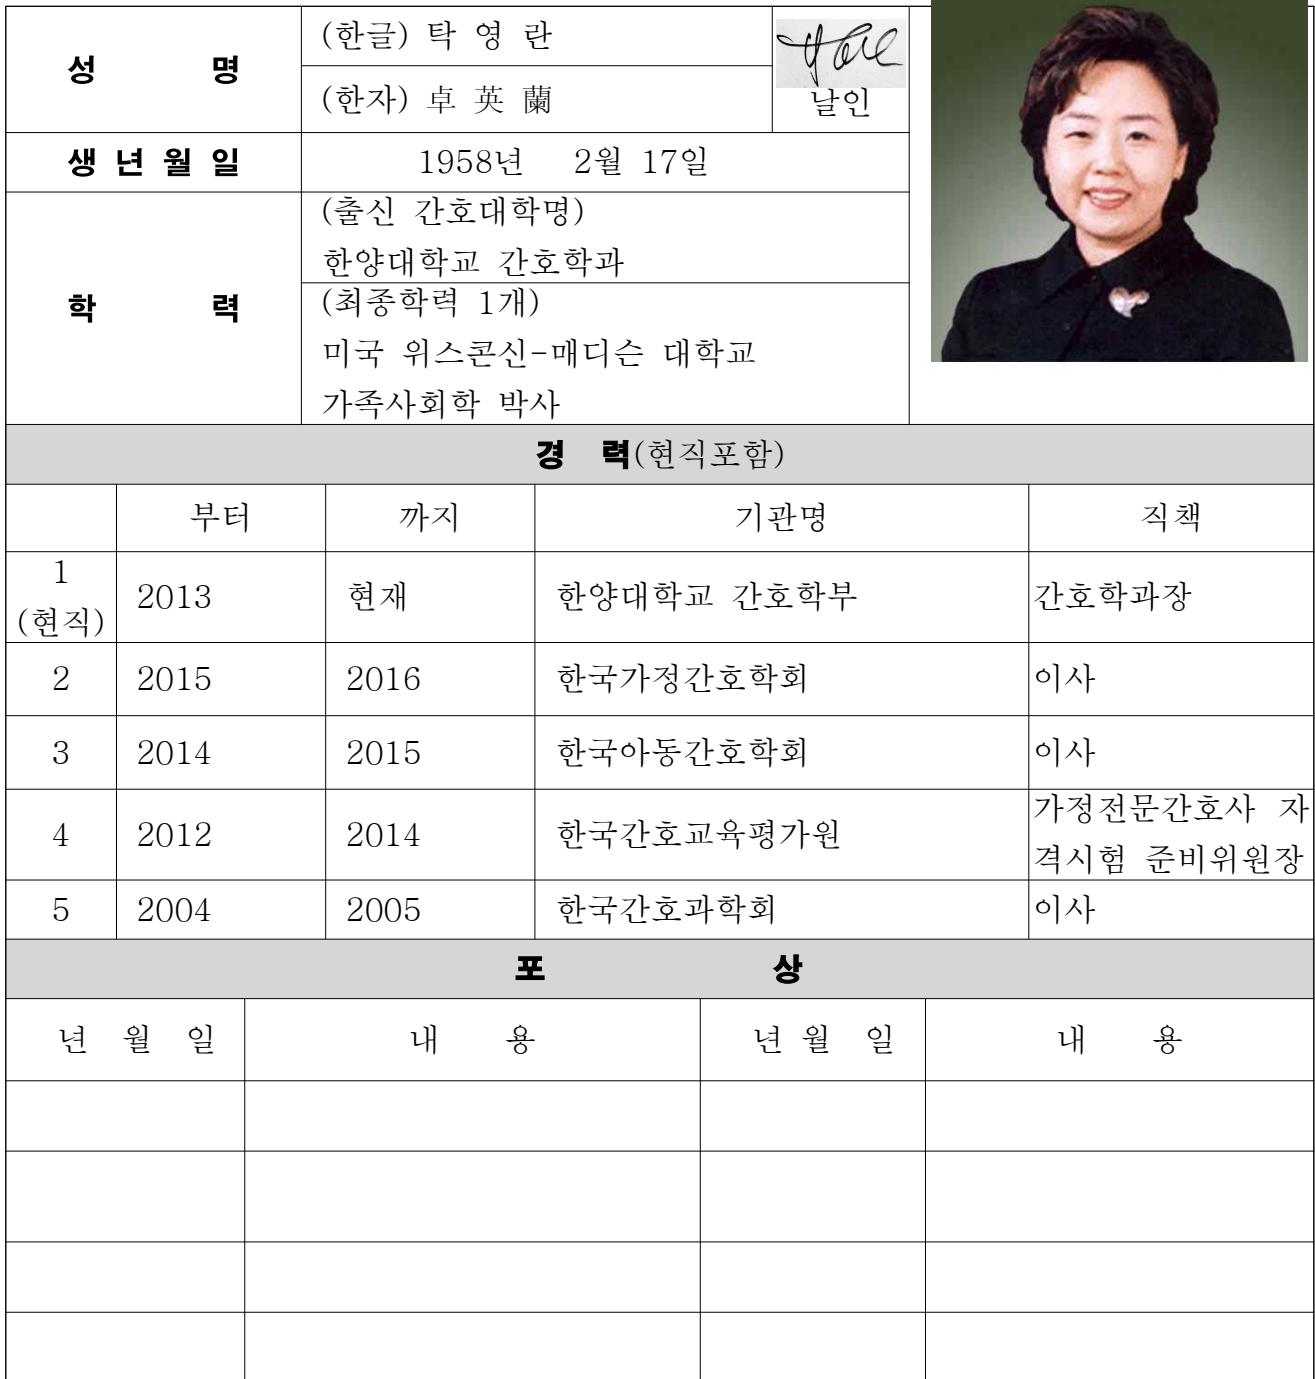 성 명
(한글) 탁 영 란
(한자) 卓 英 蘭
날인
생 년 월 일
1958년 2월 17일
학 력
(출신 간호대학명)
한양대학교 간호학과
(최종학력 1개)
미국 위스콘신-매디슨 대학교
가족사회학 박사
경 력(현직포함)
부터 까지 기관명 직책
1
(현직)
2013 현재 한양대학교 간호학부 간호학과장
2 2015 2016 한국가정간호학회 이사
3 2014 2015 한국아동간호학회 이사
4 2012 2014 한국간호교육평가원
가정전문간호사 자
격시험 준비위원장
5 2004 2005 한국간호과학회 이사
포 상
년 월 일 내 용 년 월 일 내 용